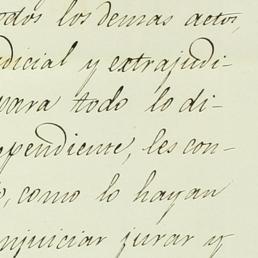 odos los demas actos,
udicial y extrajudi-
para todo lo di-
ependiente, les con-
o, como lo hayan
njuiciar jurar y